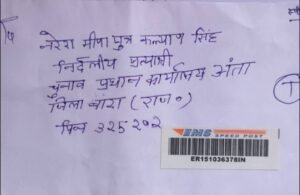 नरेश मीणा पुत्र कल्याण सिंह
निर्दलीय प्रत्याशी
चुनाव प्रधान कार्यालय अंता
जिला बारा (राज०)
पिन 325202
EMS SPEED POST
ER151036378IN